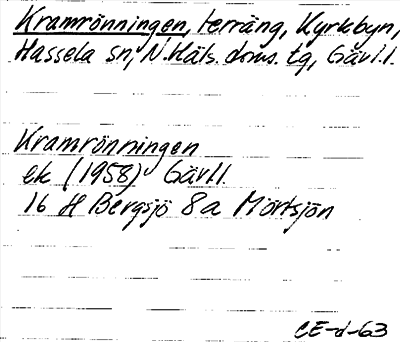 Kramrönningen, terräng, Kyrkbyn,
Hassela sn, N. Häls. doms. tg, Gävl.l.
Kramrönningen
ek (1958) Gävll
16 H Bergsjö 8a Mörtsjön
CE-d-63